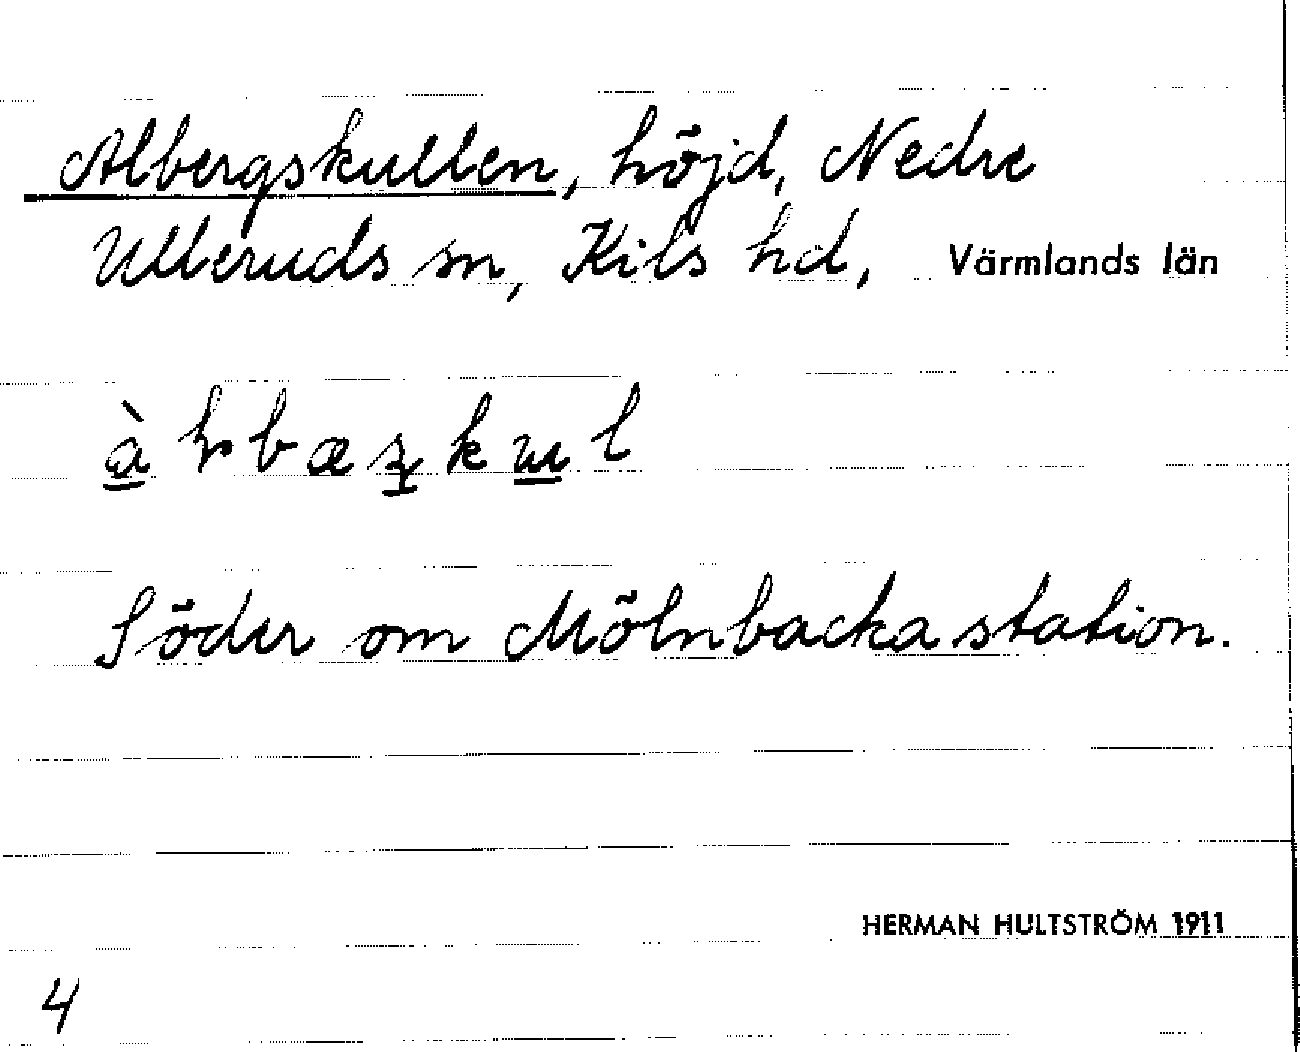 Albergskullen, höjd, Nedre
Ulleruds sn, Kils hd, Värmlands län
Söder om Mölnbacka station.
HERMAN HULTSTRÖM 1911
4